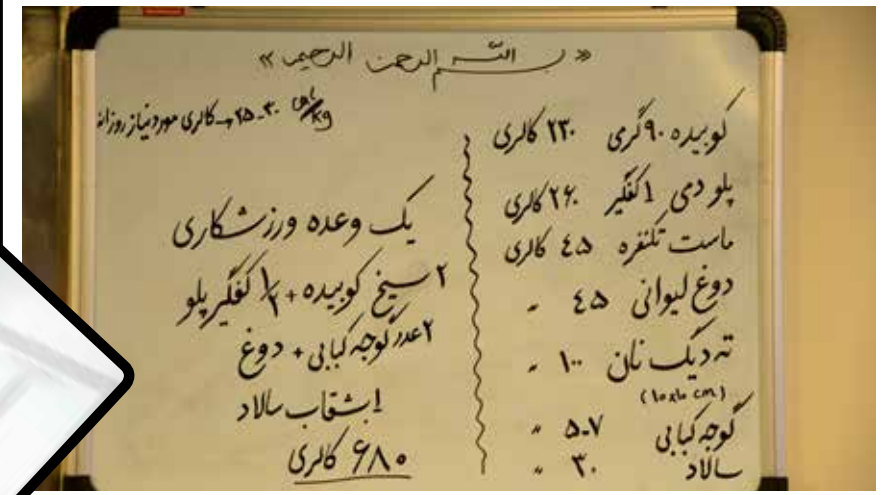 « بسم الله الرحمن الرحیم »
کوبیده ۹۰ گرمی ۲۳۰ کالری
پلو دمی ۱ کفگیر ۲۶۰ کالری
ماست تکنفره ۴۵ کالری
دوغ لیوانی ۴۵ "
ته دیگ نان ۱۰۰ "
(10x10 cm)
گوجه کبابی ۵-۷ "
سالاد ۳۰ "
کالری مورد نیاز روزانه → ۲۵-۳۰ cal/kg
یک وعده ورزشکاری
۲ سیخ کوبیده + ۱/۲ کفگیر پلو
۲ عدد گوجه کبابی + دوغ
۱ بشقاب سالاد
۶۸۰ کالری